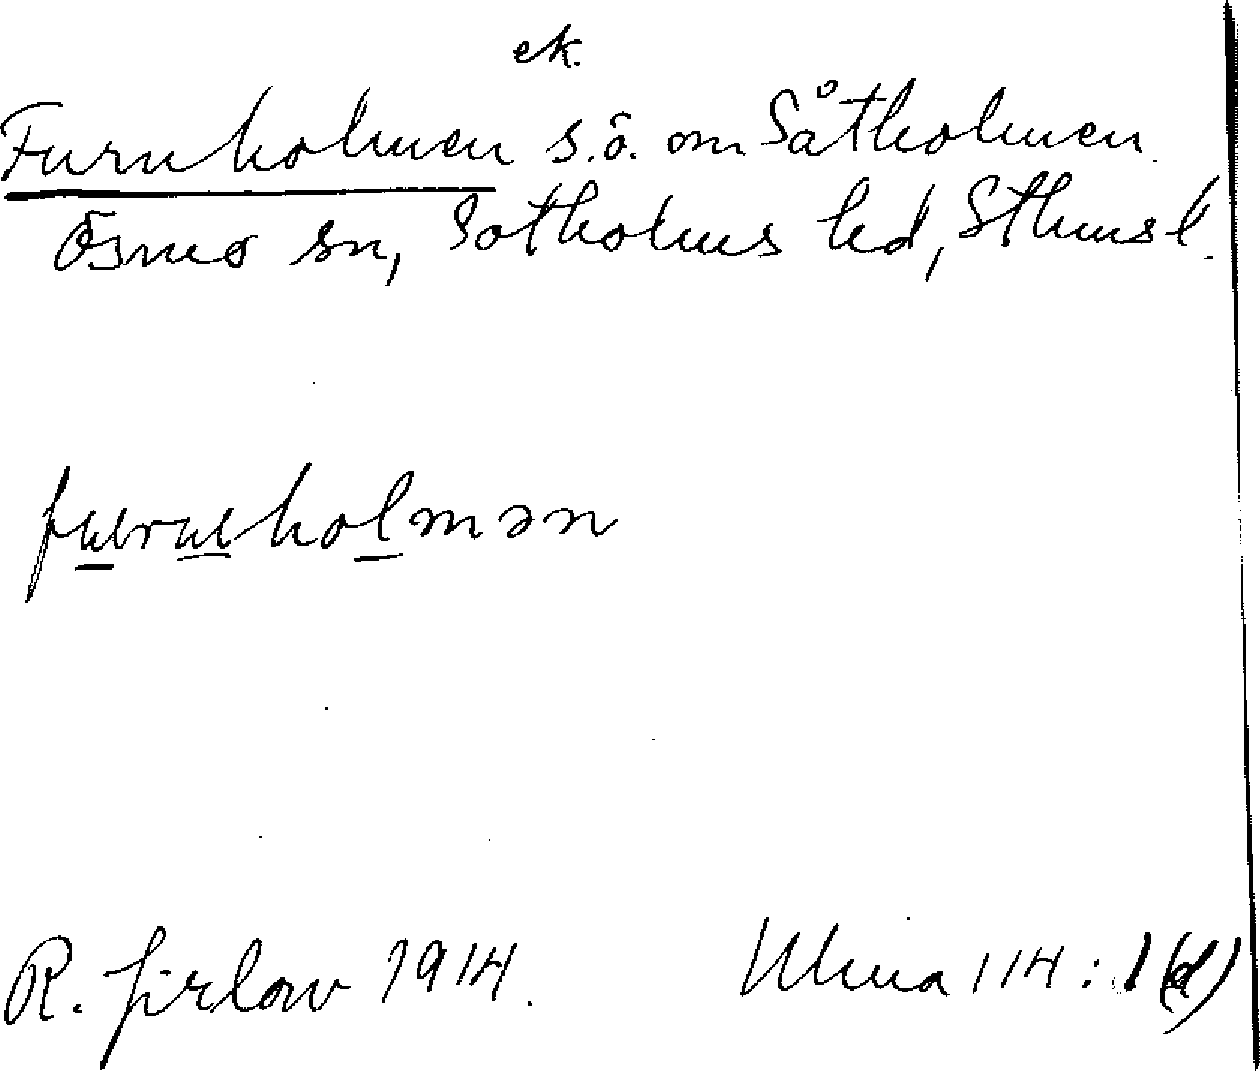 ek.
Furuholmen s.ö. om Såtholmen.
Ösmo sn, Sotholms hd, Sthmsl.
furuholmən
R. Jirlow 1914.
Ulma 114:1(d)